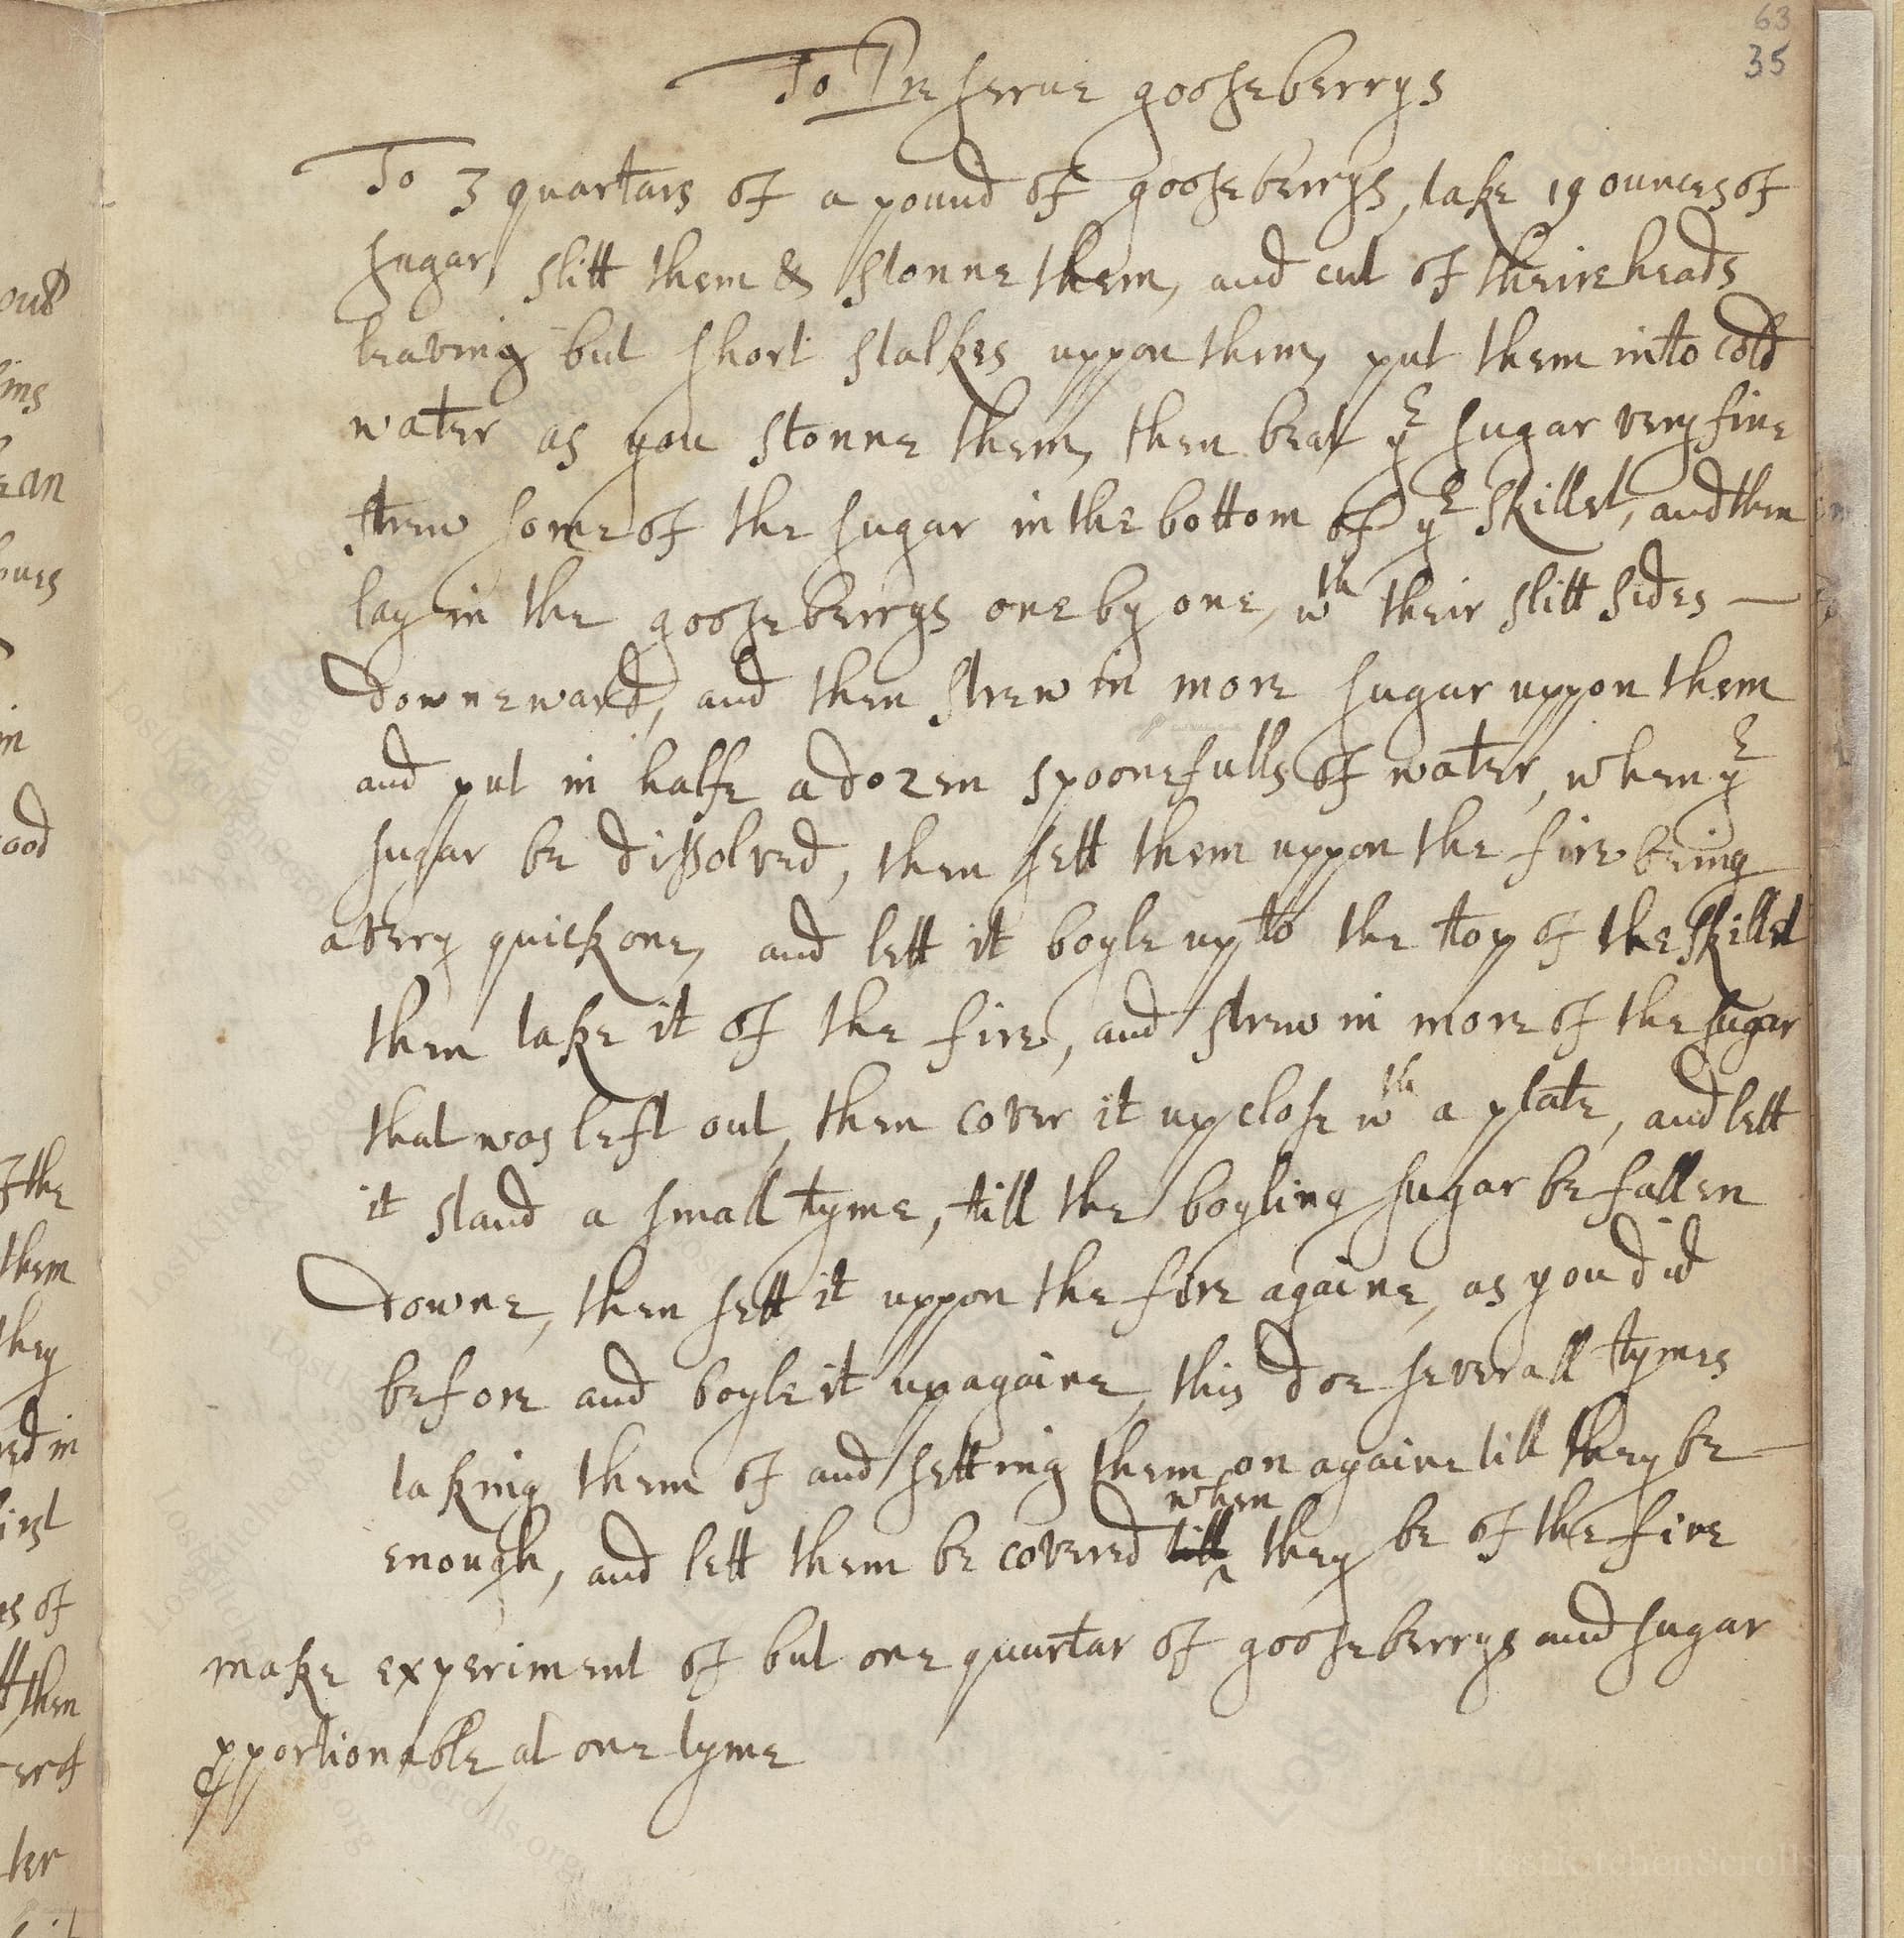 63
35
To Preserve gooseberrys
To 3 quartars of a pound of gooseberrys, take 19 ounces of
sugar, slitt them & stonne them, and cut of theire heads
leaving but short stalkes uppon them, put them into cold
water as you stonne them, then beat yᵉ sugar very fine
strew some of the sugar in the bottom of yᵉ skillet, and then
lay in the gooseberrys one by one, wᵗʰ their slitt sides —
downeward, and then strew in more sugar uppon them
and put in halfe a dozen spoonefulls of water, when yᵉ
sugar be dissolved, then sett them uppon the fire being
a very quick one, and lett it boyle up to the top of the skillet
then take it of the fire, and strew in more of the sugar
that was left out, then cover it up close wᵗʰ a plate, and lett
it stand a small tyme, till the boyling sugar be fallen
downe, then sett it uppon the fire againe, as you did
before and boyle it up againe, this doe severall tymes
taking them of and setting them on againe till they be —
enough, and lett them be covered till when they be of the fire
make experiment of but one quartar of gooseberrys and sugar
pportionable at one tyme
LostKitchenScrolls.org